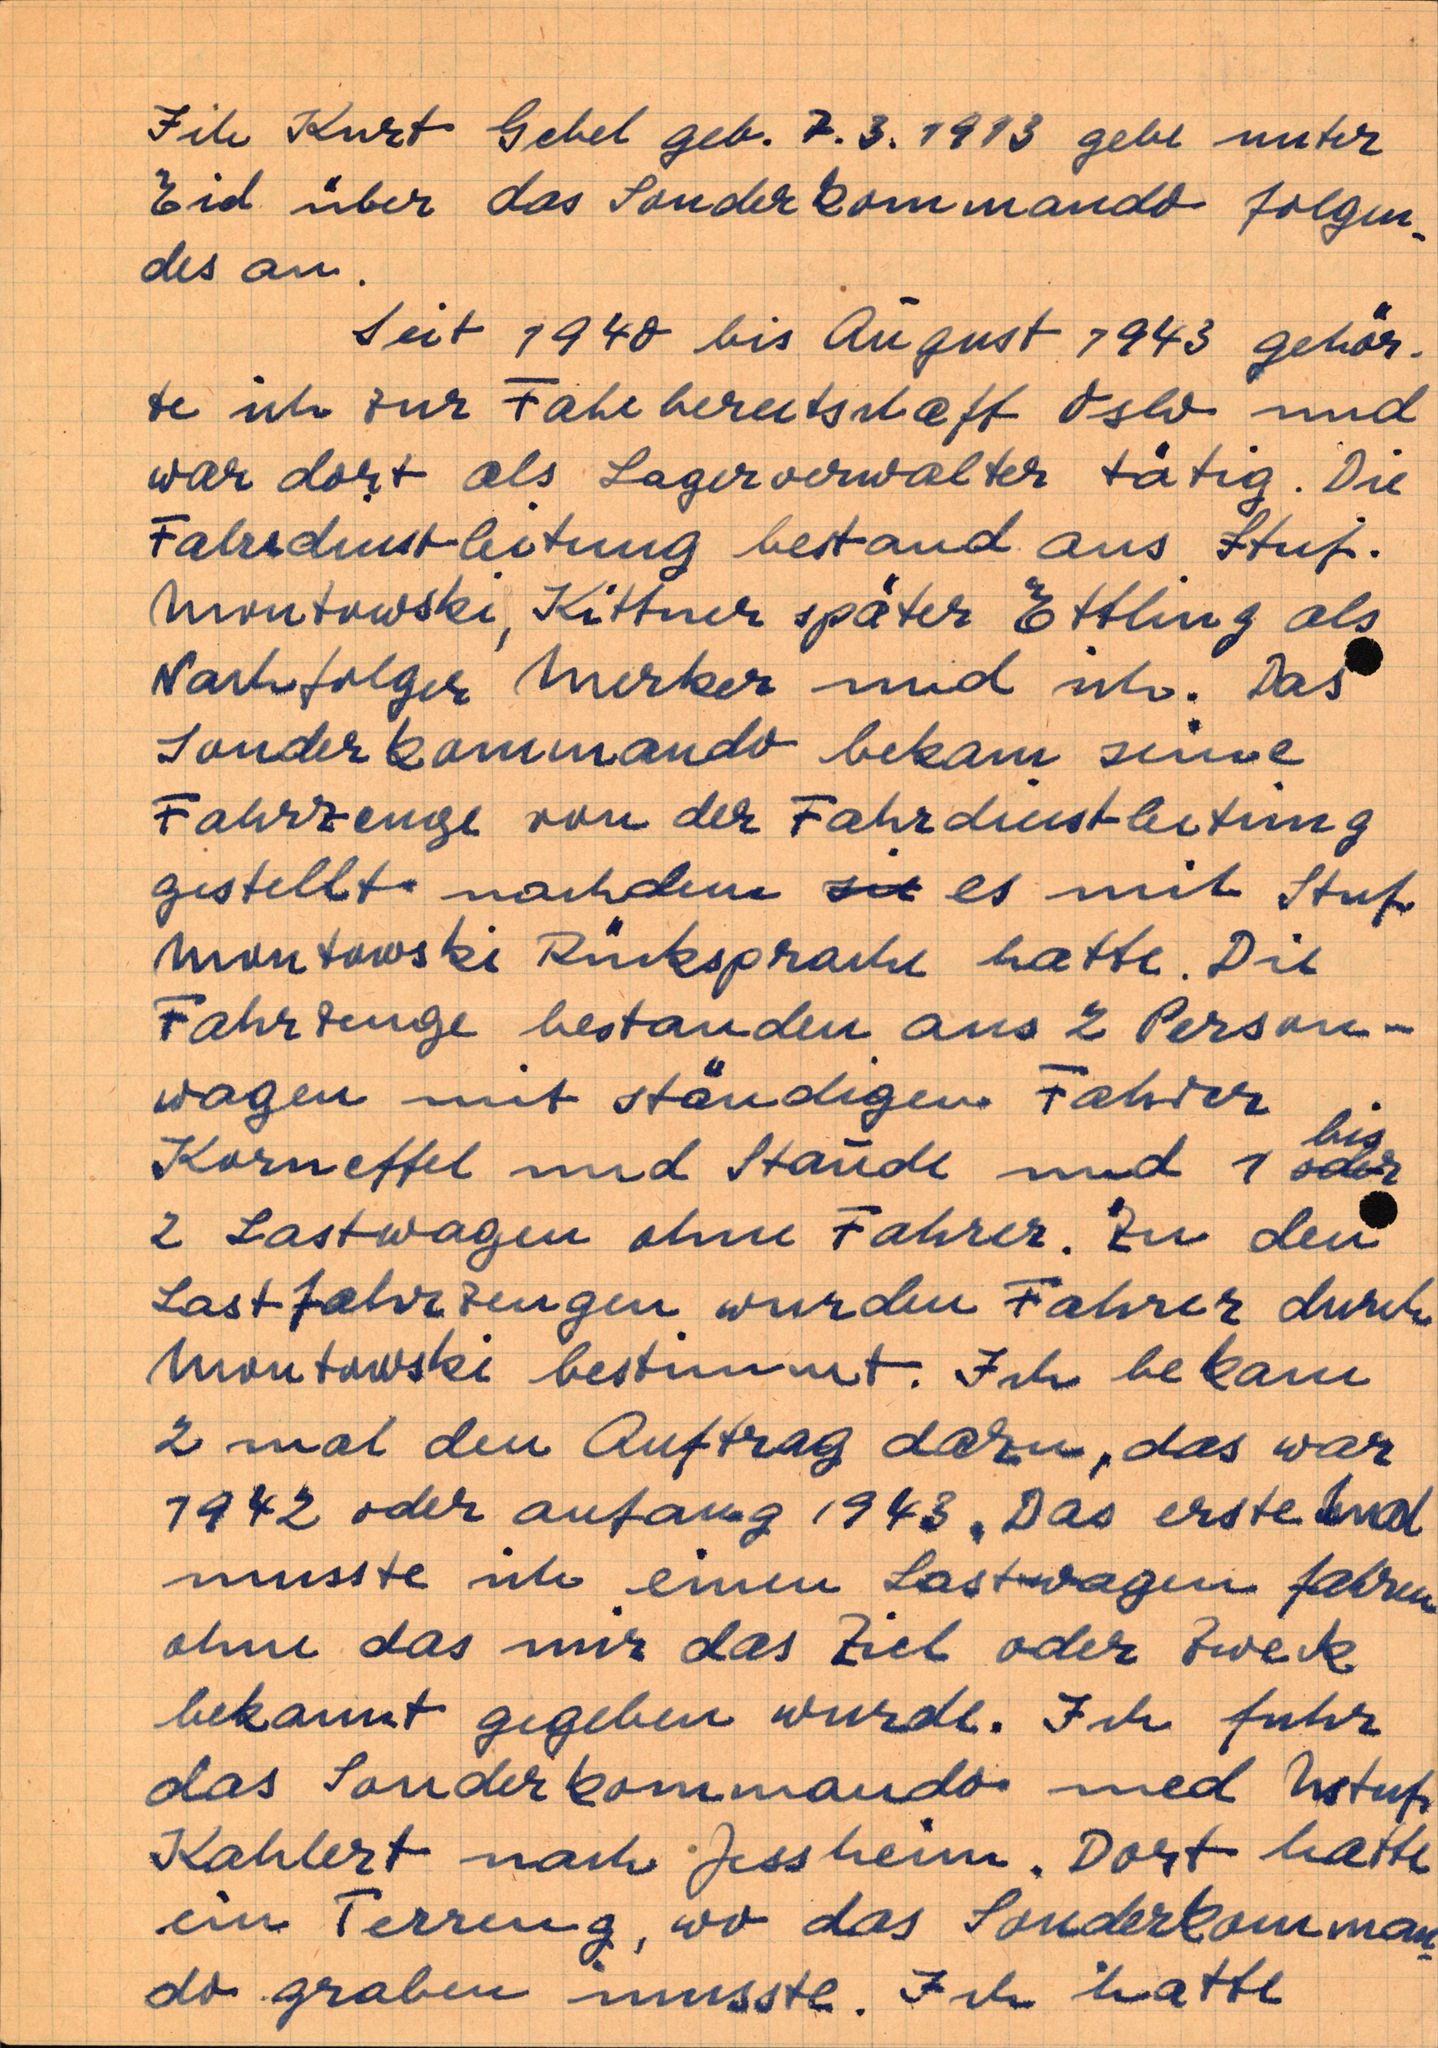 Ich Kurt Gebel geb. 7.3.1913 gebe unter
Eid über das Sonderkommando folgen-
des an.
Seit 1940 bis August 1943 gehör-
te ich zur Fahrbereitschaft Oslo und
war dort als Lagerverwalter tätig. Die
Fahrdienstleitung bestand aus Stuf.
Montowski, Kittner später Ettling als
Nachfolger Merker und ich. Das
Sonderkommando bekam seine
Fahrzeuge von der Fahrdienstleitung
gestellt nachdem sie es mit Stuf.
Montowski Rücksprache hatte. Die
Fahrzeuge bestanden aus 2 Person-
wagen mit ständigen Fahrer
Korneffel und Staude und 1 oder bis
2 Lastwagen ohne Fahrer. Zu den
Lastfahrzeugen wurden Fahrer durch
Montowski bestimmt. Ich bekam
2 mal den Auftrag dazu, das war
1942 oder anfang 1943. Das erste Mal
musste ich einen Lastwagen fahren
ohne das mir das Ziel oder Zweck
bekannt gegeben wurde. Ich fuhr
das Sonderkommando med Ustuf.
Kahlert nach Jessheim. Dort hatte
ein Terreng, wo das Sonderkomman-
do graben musste. Ich hatte